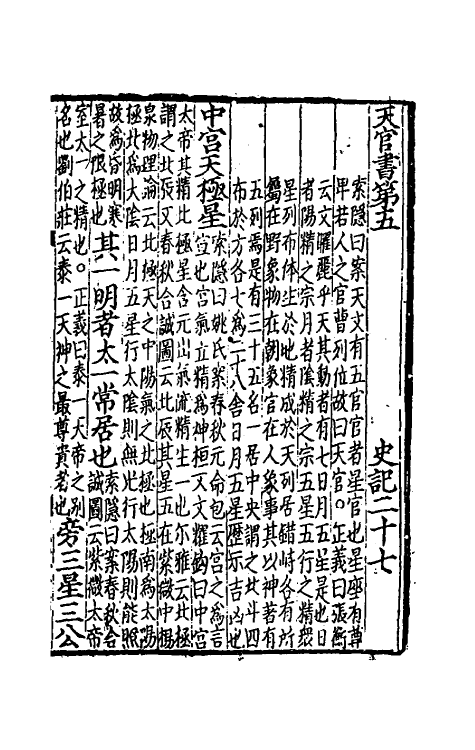 天官書第五　　史記二十七
索隱曰案天文有五官官者星官也星座有尊
卑若人之官曹列位故曰天官。正義曰張衡
云文曜麗乎天其動者有七日月五星是也日
者陽精之宗月者陰精之宗五星五行之精衆
星列布體生於地精成於天列居錯峙各有所
屬在野象物在朝象官在人象事其以神著有
五列焉是有三十五名一居中央謂之北斗四
布於方各七爲二十八舍日月五星歷示吉凶也
中宮天極星
索隱曰姚氏案春秋元命包云宮之爲言
宣也宮氣立精爲神桓又文耀鈎曰中宮
太帝其精北極星含元出氣流精生一也尒雅云北極
謂之北辰又春秋合誠圖云北辰其星五在紫微中楊
泉物理論云北極天之中陽氣之北極也極南爲太陽
極北爲太陰日月五星行太陰則無光行太陽則能照
故爲昏明寒
暑之限極也
其一明者太一常居也
索隱曰案春秋合
誠圖云紫微太帝
室太一之精也。正義曰泰一天帝之別
名也劉伯莊云泰一天神之最尊貴者也
旁三星三公